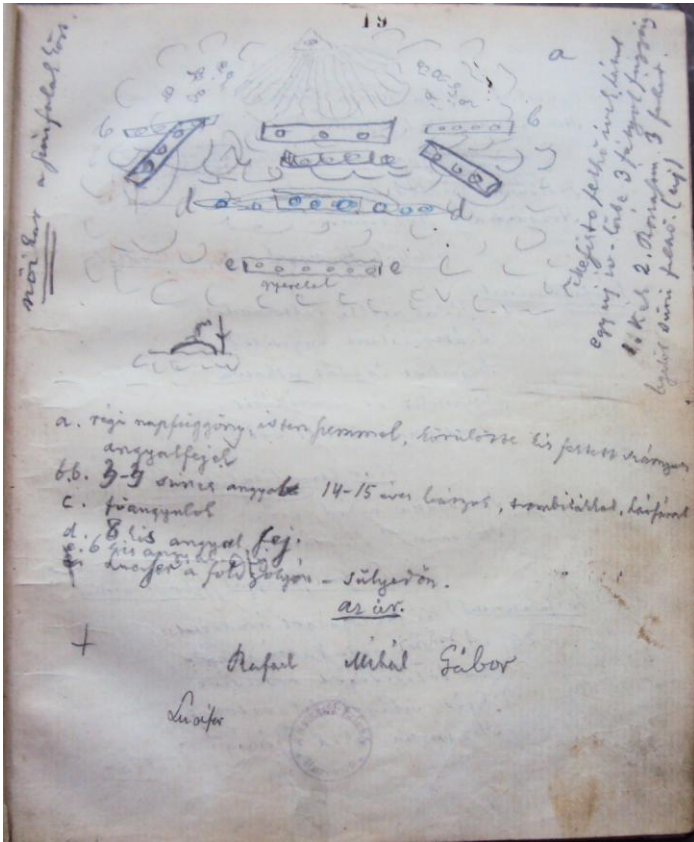 19
női kar a színfalak közt.
a
b
b
d
d
e
e
gyerekek
egy új
3 fátyol függöny
1. kék 2. Rózsaszín 3 fehér.
a. régi napfüggöny, isten szemmel, körülötte kis festett szárnyas
angyalfejek
b.b. 3-3 szines angyal 14-15 éves leányok, trombitákkal, hárfával
c. főangyalok
d. 8 kis angyal fej.
e. 6 kis angyal
Lucifer a föld golyón - sülyedőn.
az úr.
Rafael Mihál Gábor
Lucifer